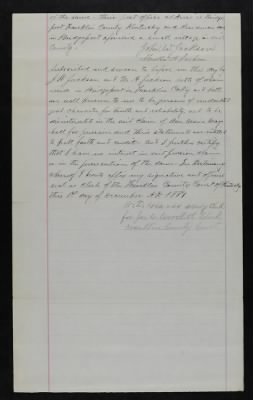 of the same - Their post office address is Bridge
port Franklin County Kentucky and their residence
in Bridgeport aforesaid a small village in said
County.
John W. Jackson
Subscribed and sworn to before me this day by
J W Jackson and A Jackson both of whom
reside in Bridgeport in Franklin Co Ky and both
are well known to me to be persons of undoubted
good character for truth and reliability and to be
disinterested in the said claim of
for pension and their statements are entitled
to full faith and credit. And I further certify
that I have no interest in said pension claim
or in the prosecution of the same. In testimony
whereof I hereto affix my signature and official
seal as Clerk of the Franklin County Court of Kentucky
this 1st day of December A.D. 1881
Clerk
Franklin County Court